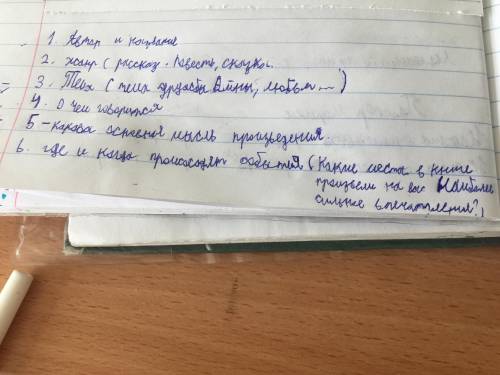 1. Автор и название
2. жанр (рассказ. Повесть, сказка.
3. Тема (тема дружбы Войны, любви ...)
4. О чем говорится
5 - какова основная мысль произведения.
6. где и когда происходят события (Какие места в книге
произвели на вас Наиболее
сильное впечатления?)